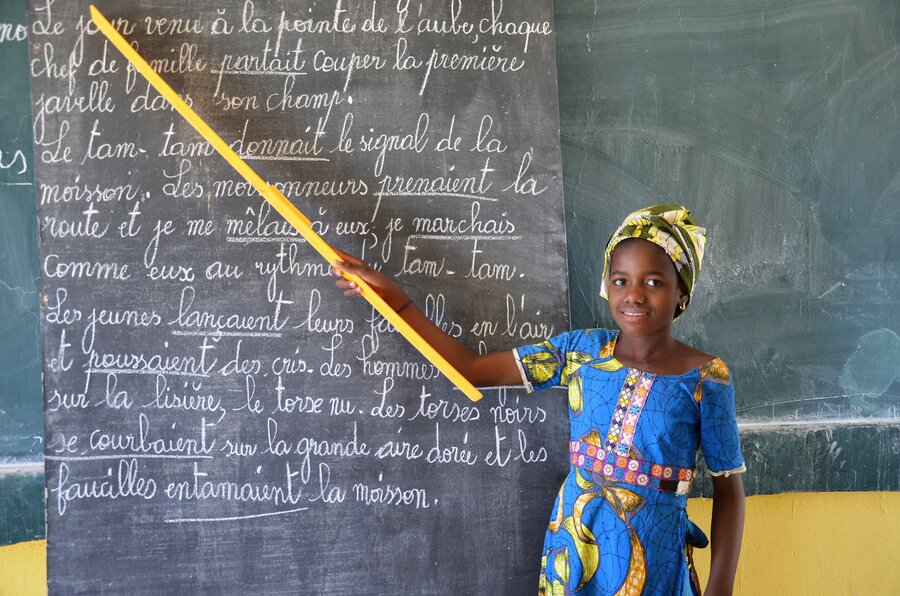 Le jour venu à la pointe de l'aube, chaque
chef de famille partait couper la première
javelle dans son champ.
Le tam-tam donnait le signal de la
moisson. Les moissonneurs prenaient la
route et je me mêlais à eux, je marchais
comme eux au rythme tam-tam.
Les jeunes lançaient leurs faucilles en l'air
et poussaient des cris. Les hommes
sur la lisière, le torse nu. Les torses noirs
se courbaient sur la grande aire dorée et les
faucilles entamaient la moisson.